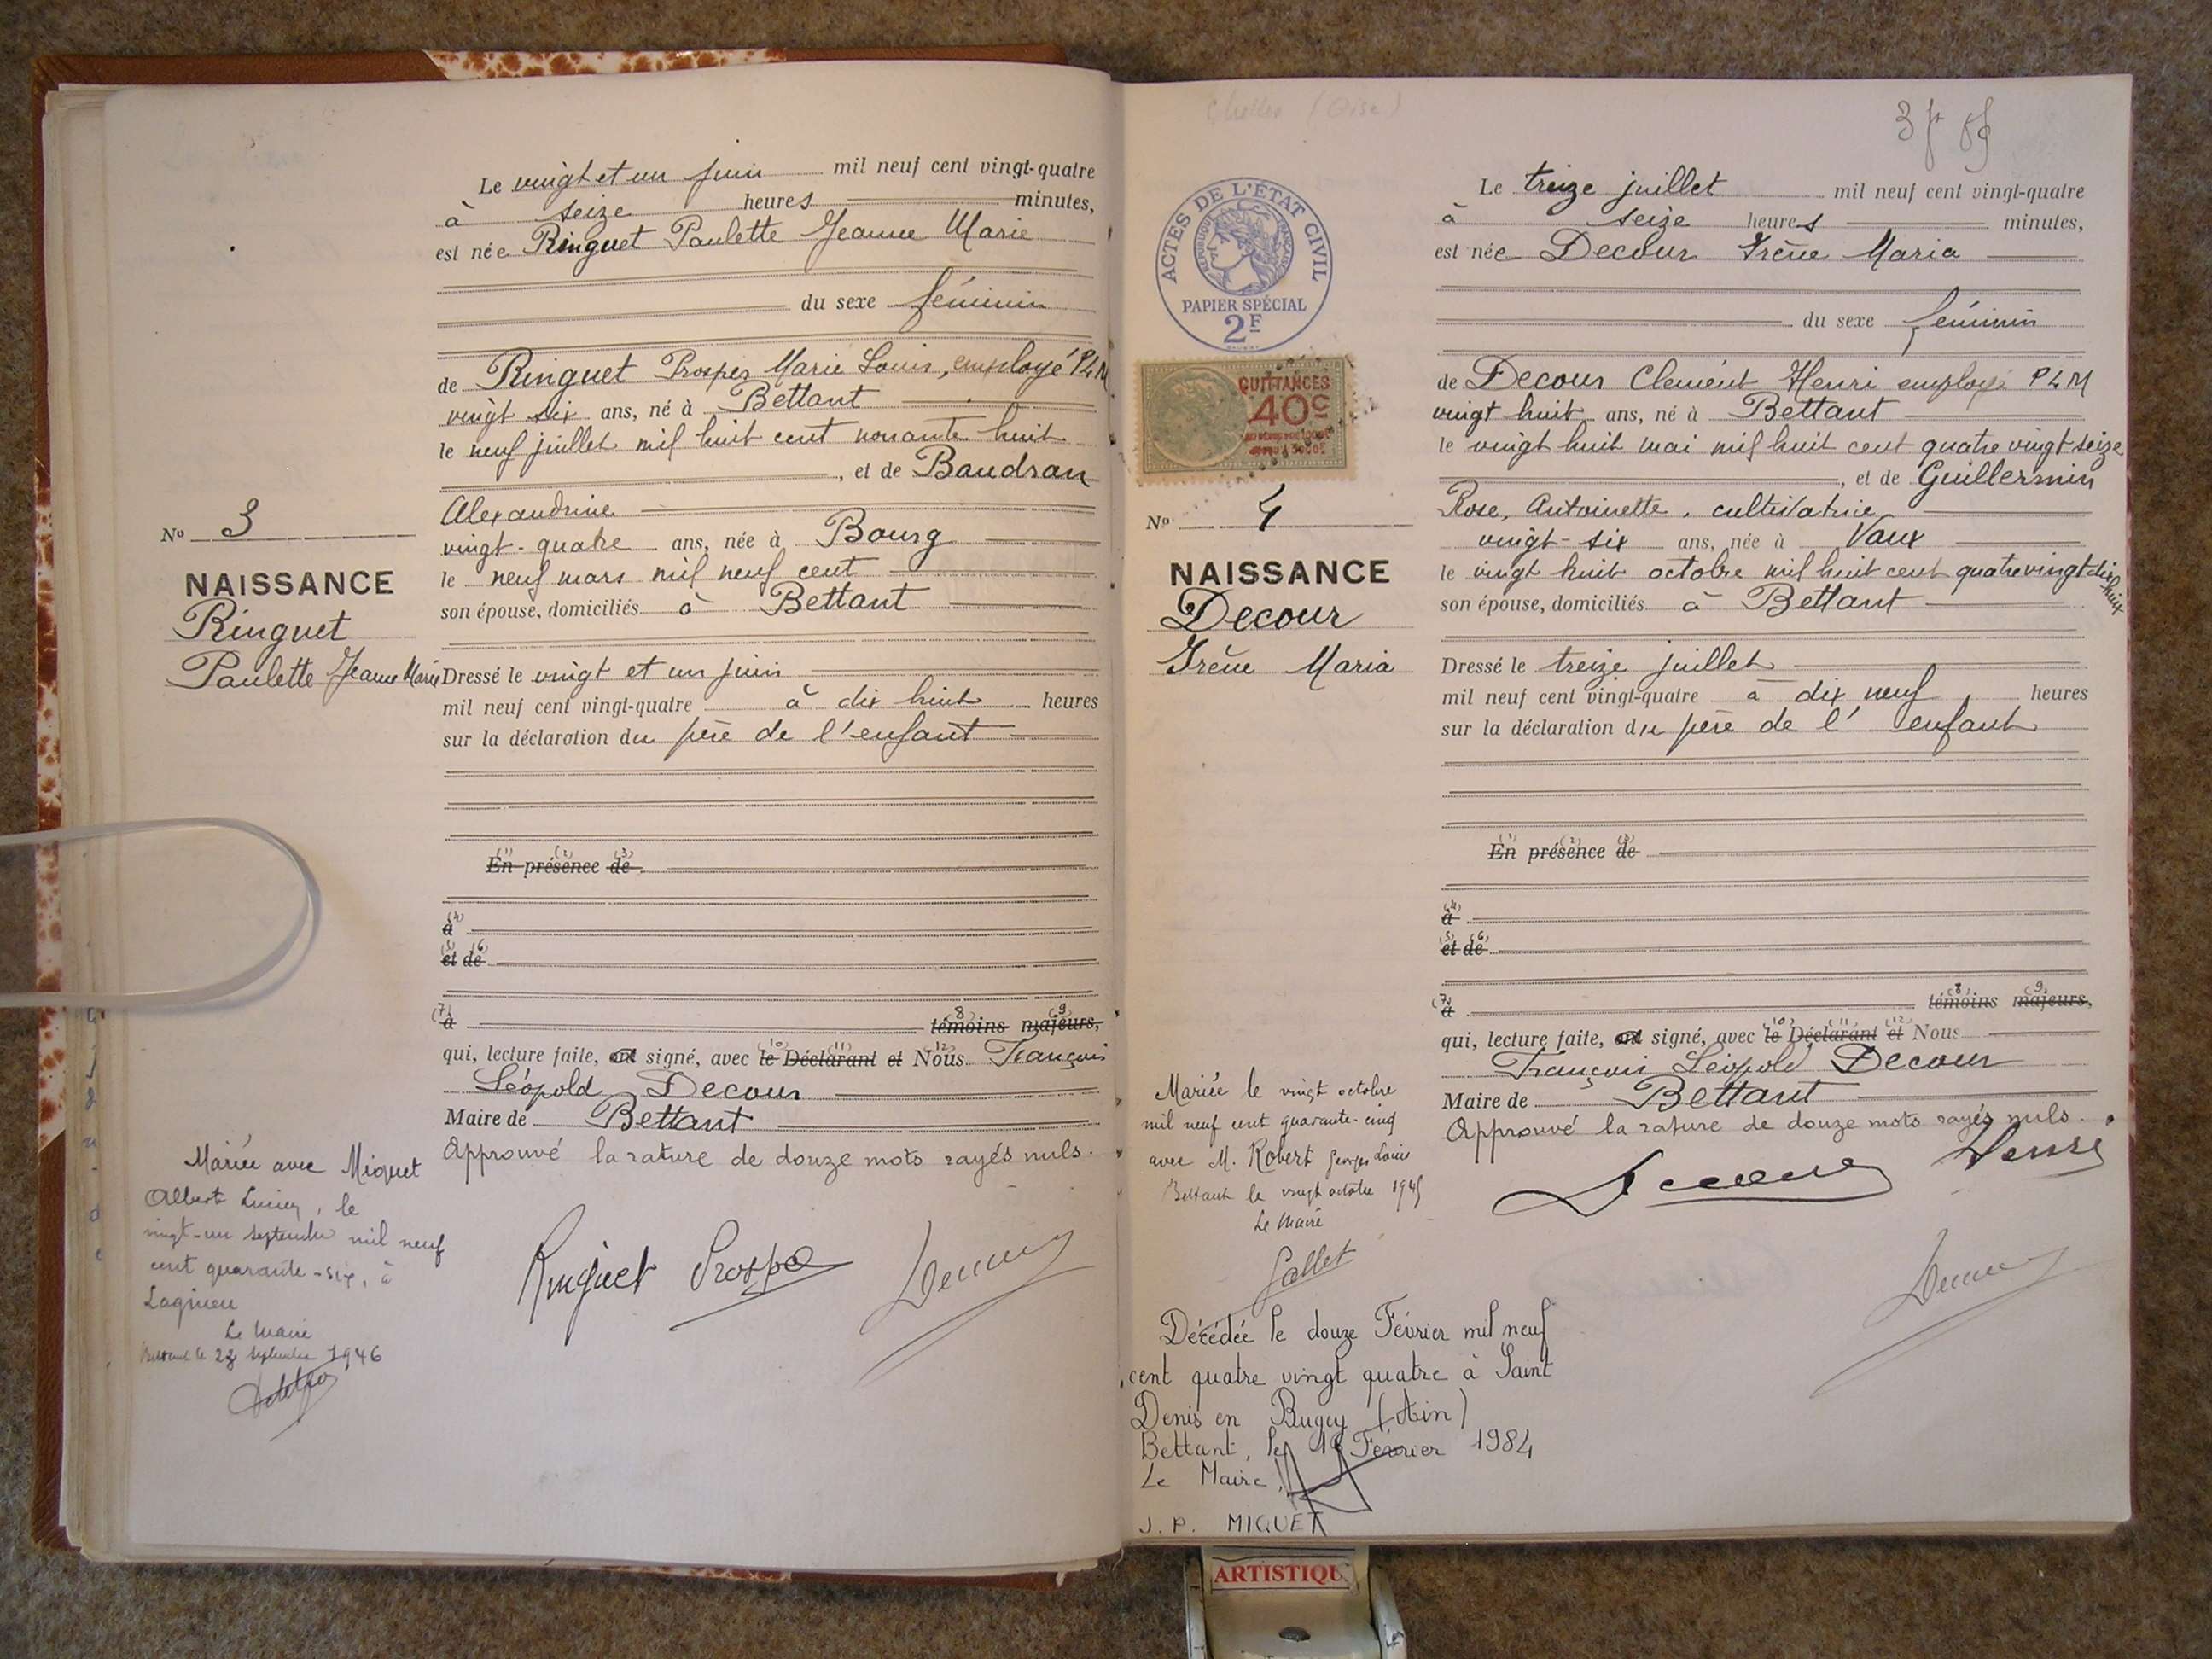 Le vingt et un juin mil neuf cent vingt-quatre
à seize heures minutes,
est née Ringuet Paulette Jeanne Marie
du sexe féminin
de Ringuet Prosper Marie Louis, employé PLM
vingt six ans, né à Bettant
le neuf juillet mil huit cent nonante huit
, et de Baudran
Alexandrine
vingt-quatre ans, née à Bourg
le neuf mars mil neuf cent
son épouse, domiciliés à Bettant
Nº 3
NAISSANCE
Ringuet
Paulette Jeanne Marie
Dressé le vingt et un juin
mil neuf cent vingt-quatre à dix huit heures
sur la déclaration du père de l'enfant
(1) (2) (3)
En présence de
(4)
à
(5) (6)
et de
(7) (8) (9)
à témoins majeurs,
(10) (11) (12)
qui, lecture faite, ont signé, avec le Déclarant et Nous François
Léopold Decour
Maire de Bettant
Approuvé la rature de douze mots rayés nuls.
Ringuet Prosper
Decour
Mariée avec Miguet
Albert Lucien, le
vingt-un septembre mil neuf
cent quarante-six, à
Lagnieu
Le Maire
Bettant le 23 septembre 1946
3 f 85
ACTES DE L'ÉTAT CIVIL
RÉPUBLIQUE FRANÇAISE
PAPIER SPÉCIAL
2F
QUITTANCES
40c
Nº 4
NAISSANCE
Decour
Irène Maria
Le treize juillet mil neuf cent vingt-quatre
à seize heures minutes,
est née Decour Irène Maria
du sexe féminin
de Decour Clément Henri employé PLM
vingt huit ans, né à Bettant
le vingt huit mai mil huit cent quatre vingt seize
, et de Guillermin
Rose, Antoinette, cultivatrice
vingt-six ans, née à Vaux
le vingt huit octobre mil huit cent quatre vingt dix huit
son épouse, domiciliés à Bettant
Dressé le treize juillet
mil neuf cent vingt-quatre à dix neuf heures
sur la déclaration du père de l'enfant
(1) (2) (3)
En présence de
(4)
à
(5) (6)
et de
(7) (8) (9)
à témoins majeurs,
(10) (11) (12)
qui, lecture faite, ont signé, avec le Déclarant et Nous
François Léopold Decour
Maire de Bettant
Approuvé la rature de douze mots rayés nuls.
Decour Henri
Decour
Mariée le vingt octobre
mil neuf cent quarante-cinq
avec M. Robert Georges Louis
Bettant le vingt octobre 1945
Le Maire
Gallet
Décédée le douze Février mil neuf
cent quatre vingt quatre à Saint
Denis en Bugey (Ain)
Bettant, le Février 1984
Le Maire,
J. P. MIGUET
ARTISTIQU